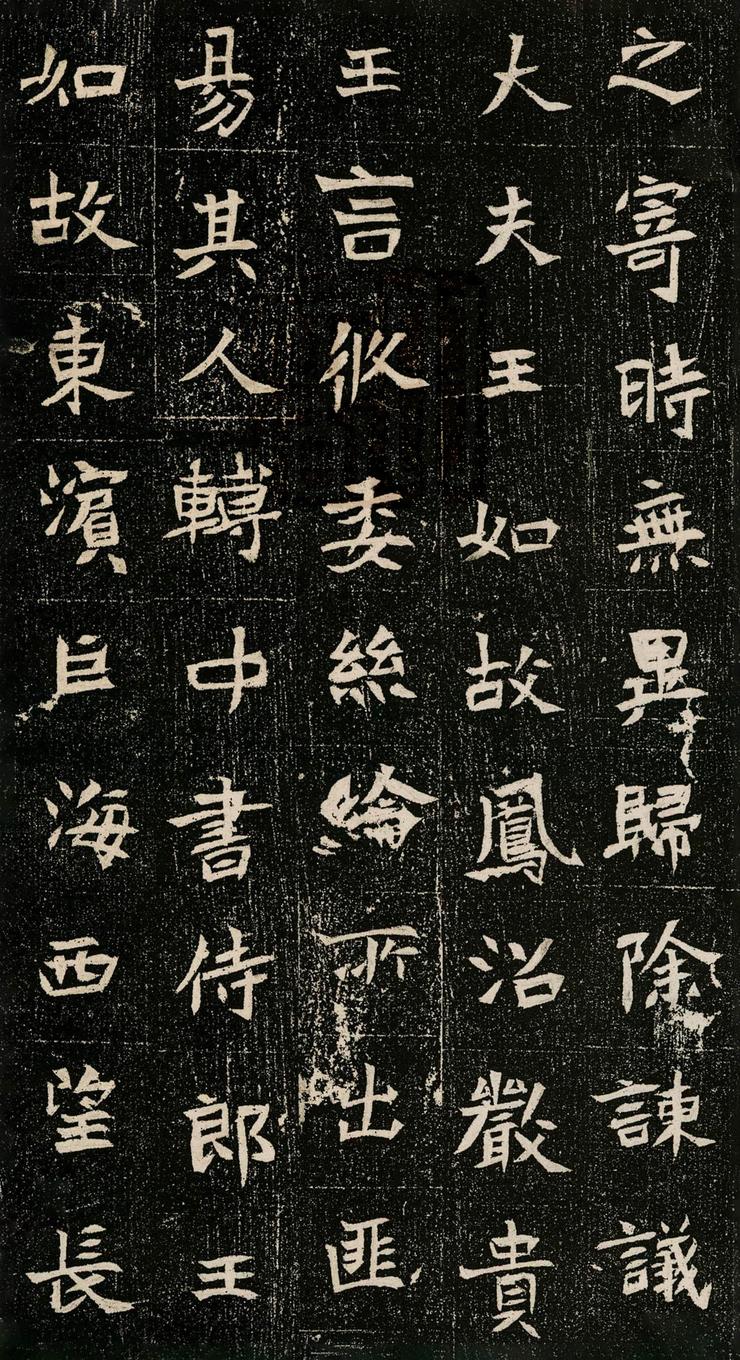 之寄時無異歸除諫議
大夫王如故鳳沼嚴貴
王言攸委絲綸所出匪
易其人轉中書侍郎王
如故東濵巨海西望長